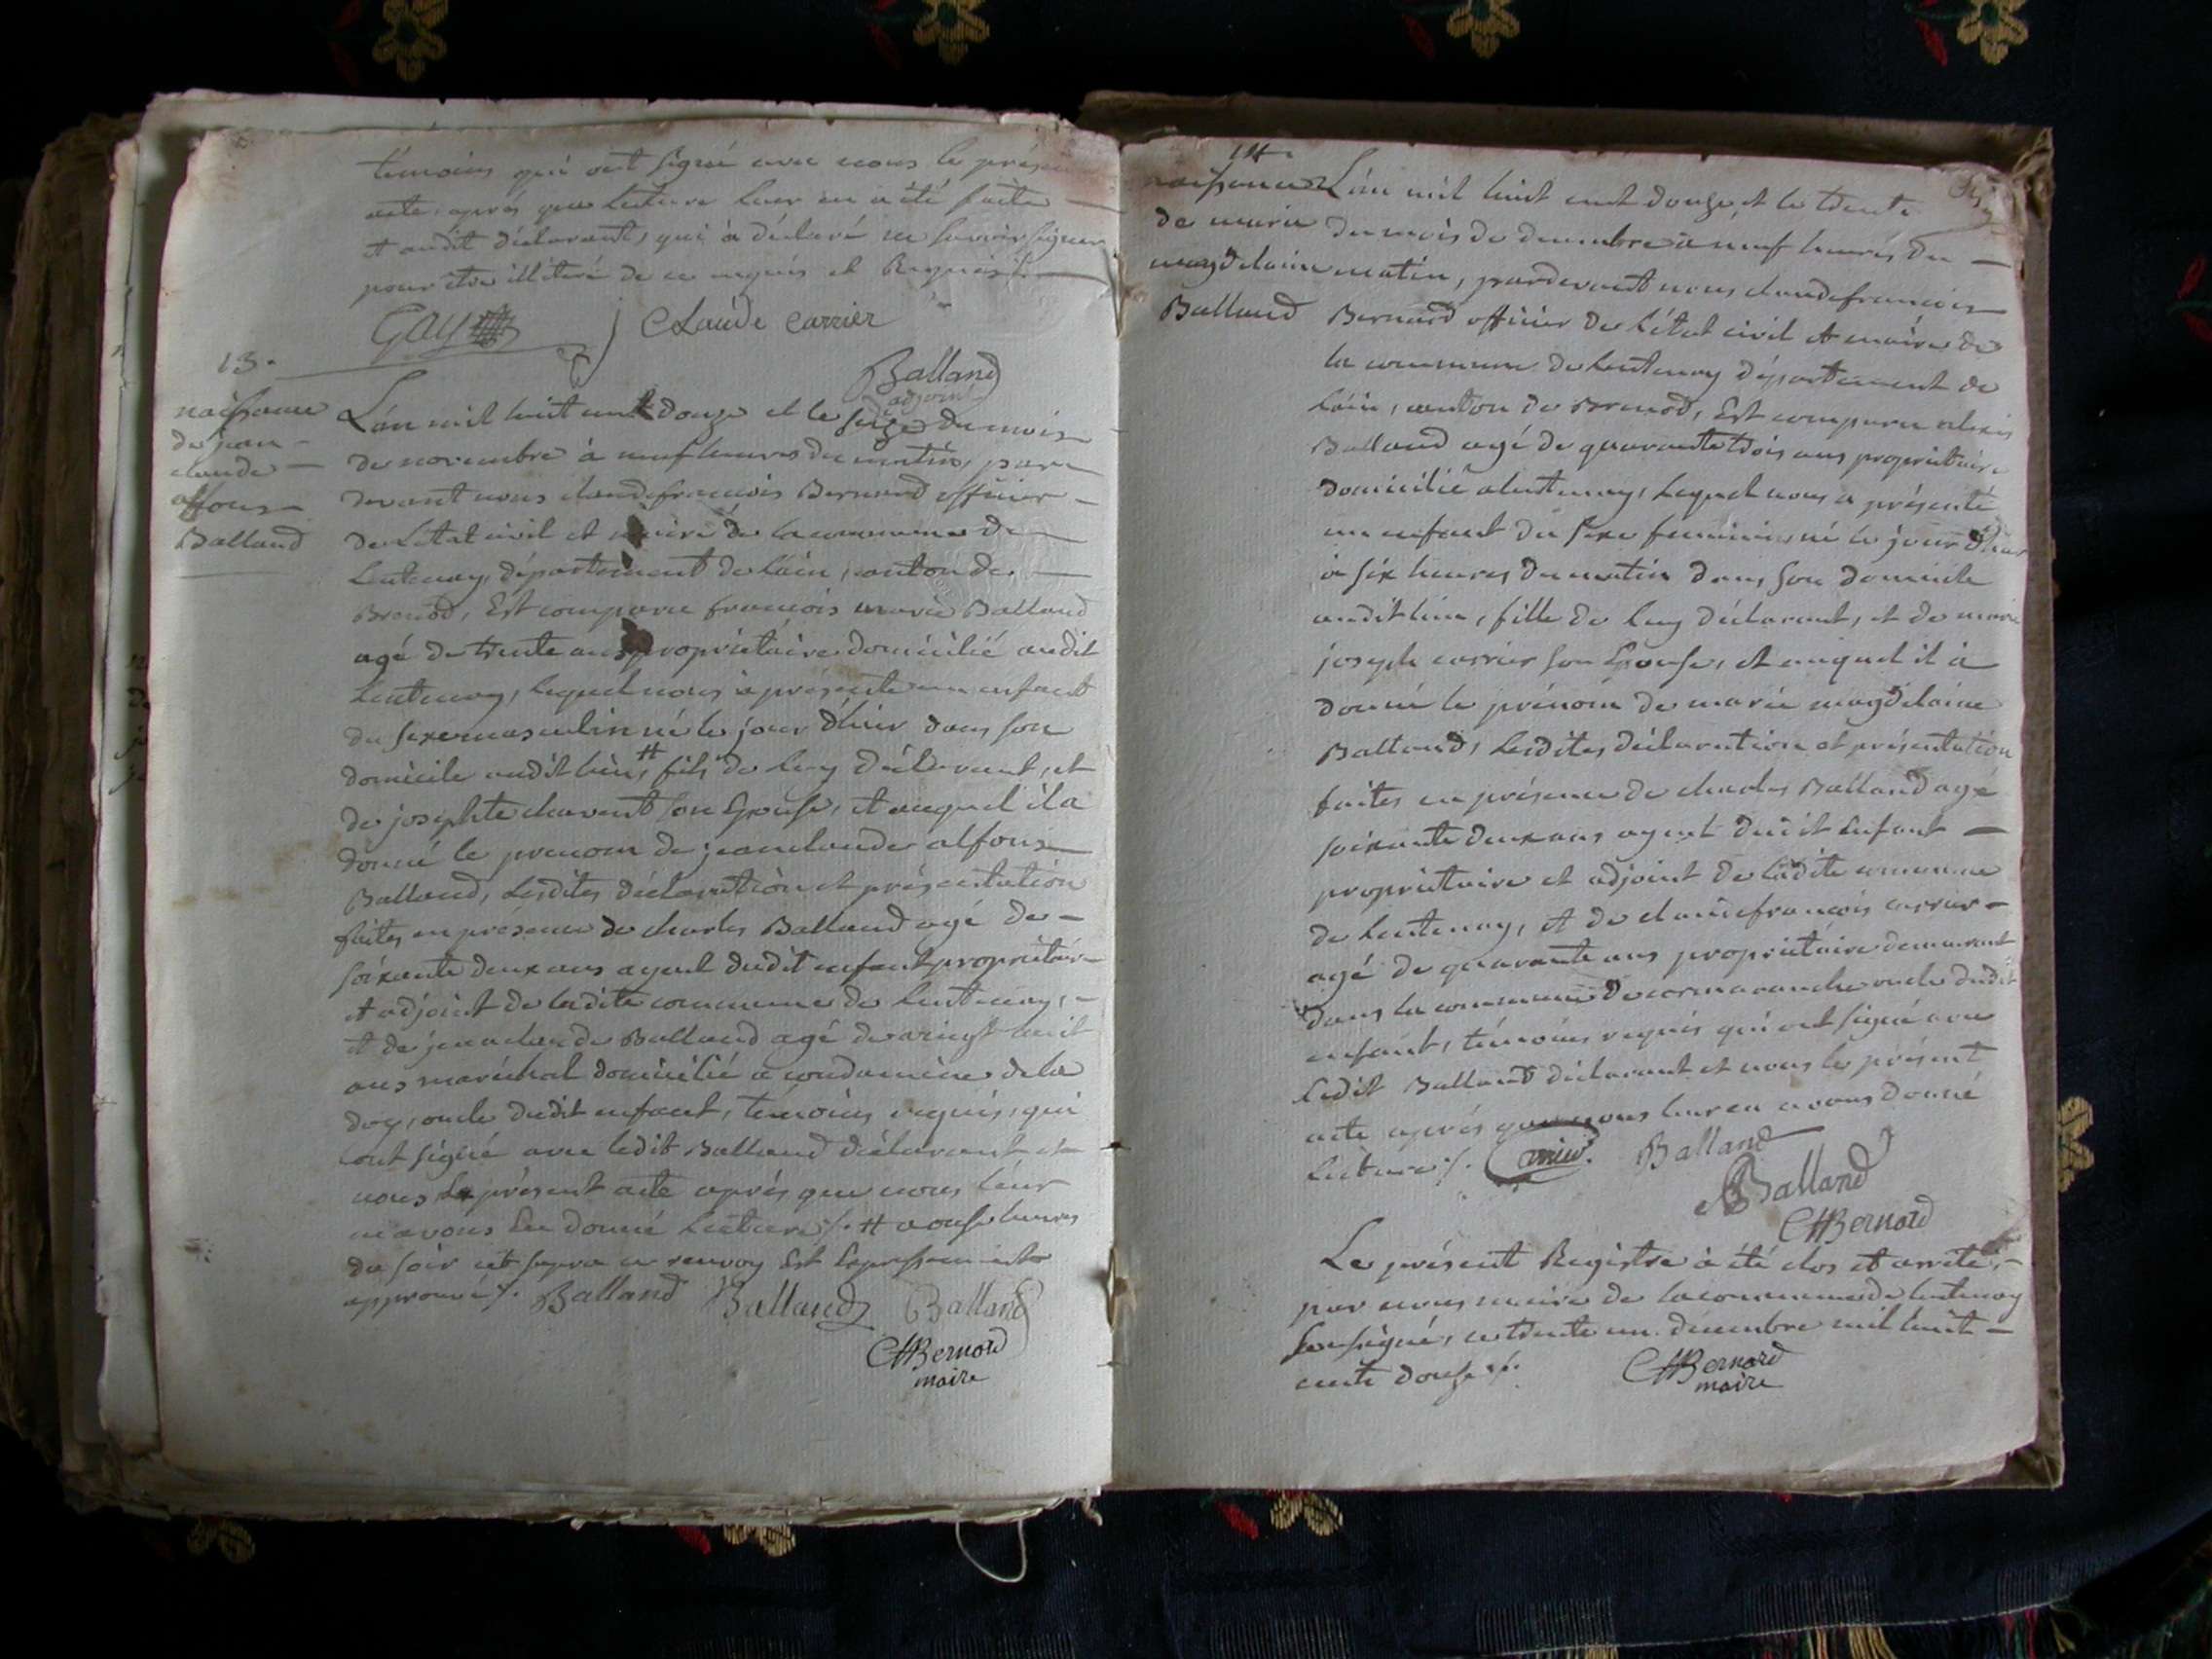 témoins qui ont signé avec nous le présen
acte, après que lecture leur en a été faite
et audit déclarant, qui à déclaré ne savoir signer
pour être illiteré de ce enquis et Requis
GAY
Claude Carrier
Balland
adjoint
13.
naissance
de jean
claude
alfons
Balland
L'an mil huit cent douze et le seize du mois
de novembre à neuf heures du matin, par
devant nous claudefrancois Bernard officier
de L'état civil et maire de la commune de
Lentenay, département de L'ain, canton de
Brenod, Est comparu francois marie Balland
agé de trente ans propriétaire domicilié audit
Lentenay, lequel nous à présenté un enfant
du sexe masculin né le jour d'hier dans son
domicile audit lieu, # fils de luy déclarant, et
de josephte charvent son Epouse, et auquel il a
donné le prenom de jeanclaude alfons
Balland, Lesdites déclaration et présentation
faites en présence de charles Balland agé de
soixante deux ans ayeul dudit enfant propriétaire
et adjoint de ladite commune de Lentenay,
et de jeanclaude Balland agé de vingt huit
ans maréchal domicilié a condamine de la
doy, oncle dudit enfant, témoins requis, qui
ont signé avec ledit Balland déclarant et
nous Le présent acte après que nous leur
en avons Eu donné Lecture ./. # a onse heures
du soir ut supra ce renvoy Est Expressement
approuvé ./. Balland Balland Balland
CfBernard
maire
14.
naissance
de marie
magdelaine
Balland
L'an mil huit cent douze, et le trente
du mois de decembre à neuf heures du
matin, pardevant nous claudefrancois
Bernard officier de L'état civil et maire de
la commune de Lentenay département de
L'ain, canton de Brenod, Est comparu alexis
Balland agé de quarante trois ans propriétaire
domicilié a lentenay, Lequel nous a présenté
un enfant du sexe feminin, né le jour d'hier
à six heures du matin dans son domicile
audit lieu, fille de luy déclarant, et de marie
joseph carrier son Epouse, et auquel il à
donné le prénom de marie magdelaine
Balland, Lesdites déclaration et présentation
faites en présence de charles Balland agé
soixante deux ans ayeul dudit Enfant
propriétaire et adjoint de Ladite commune
de Lentenay, et de claudefrancois carrier
agé de quarante ans propriétaire demeurant
dans la commune de cormaranche oncle dudit
enfant, témoins requis qui ont signé avec
Ledit Balland déclarant et nous le présent
acte après que nous leur en avons donné
Lecture ./. Carrier. Balland
Balland
CfBernard
Le présent Registre à été clos et arrêté
par nous maire de la commune de lentenay
soussigné, ce trente un decembre mil huit
cents douze ./.
CfBernard
maire